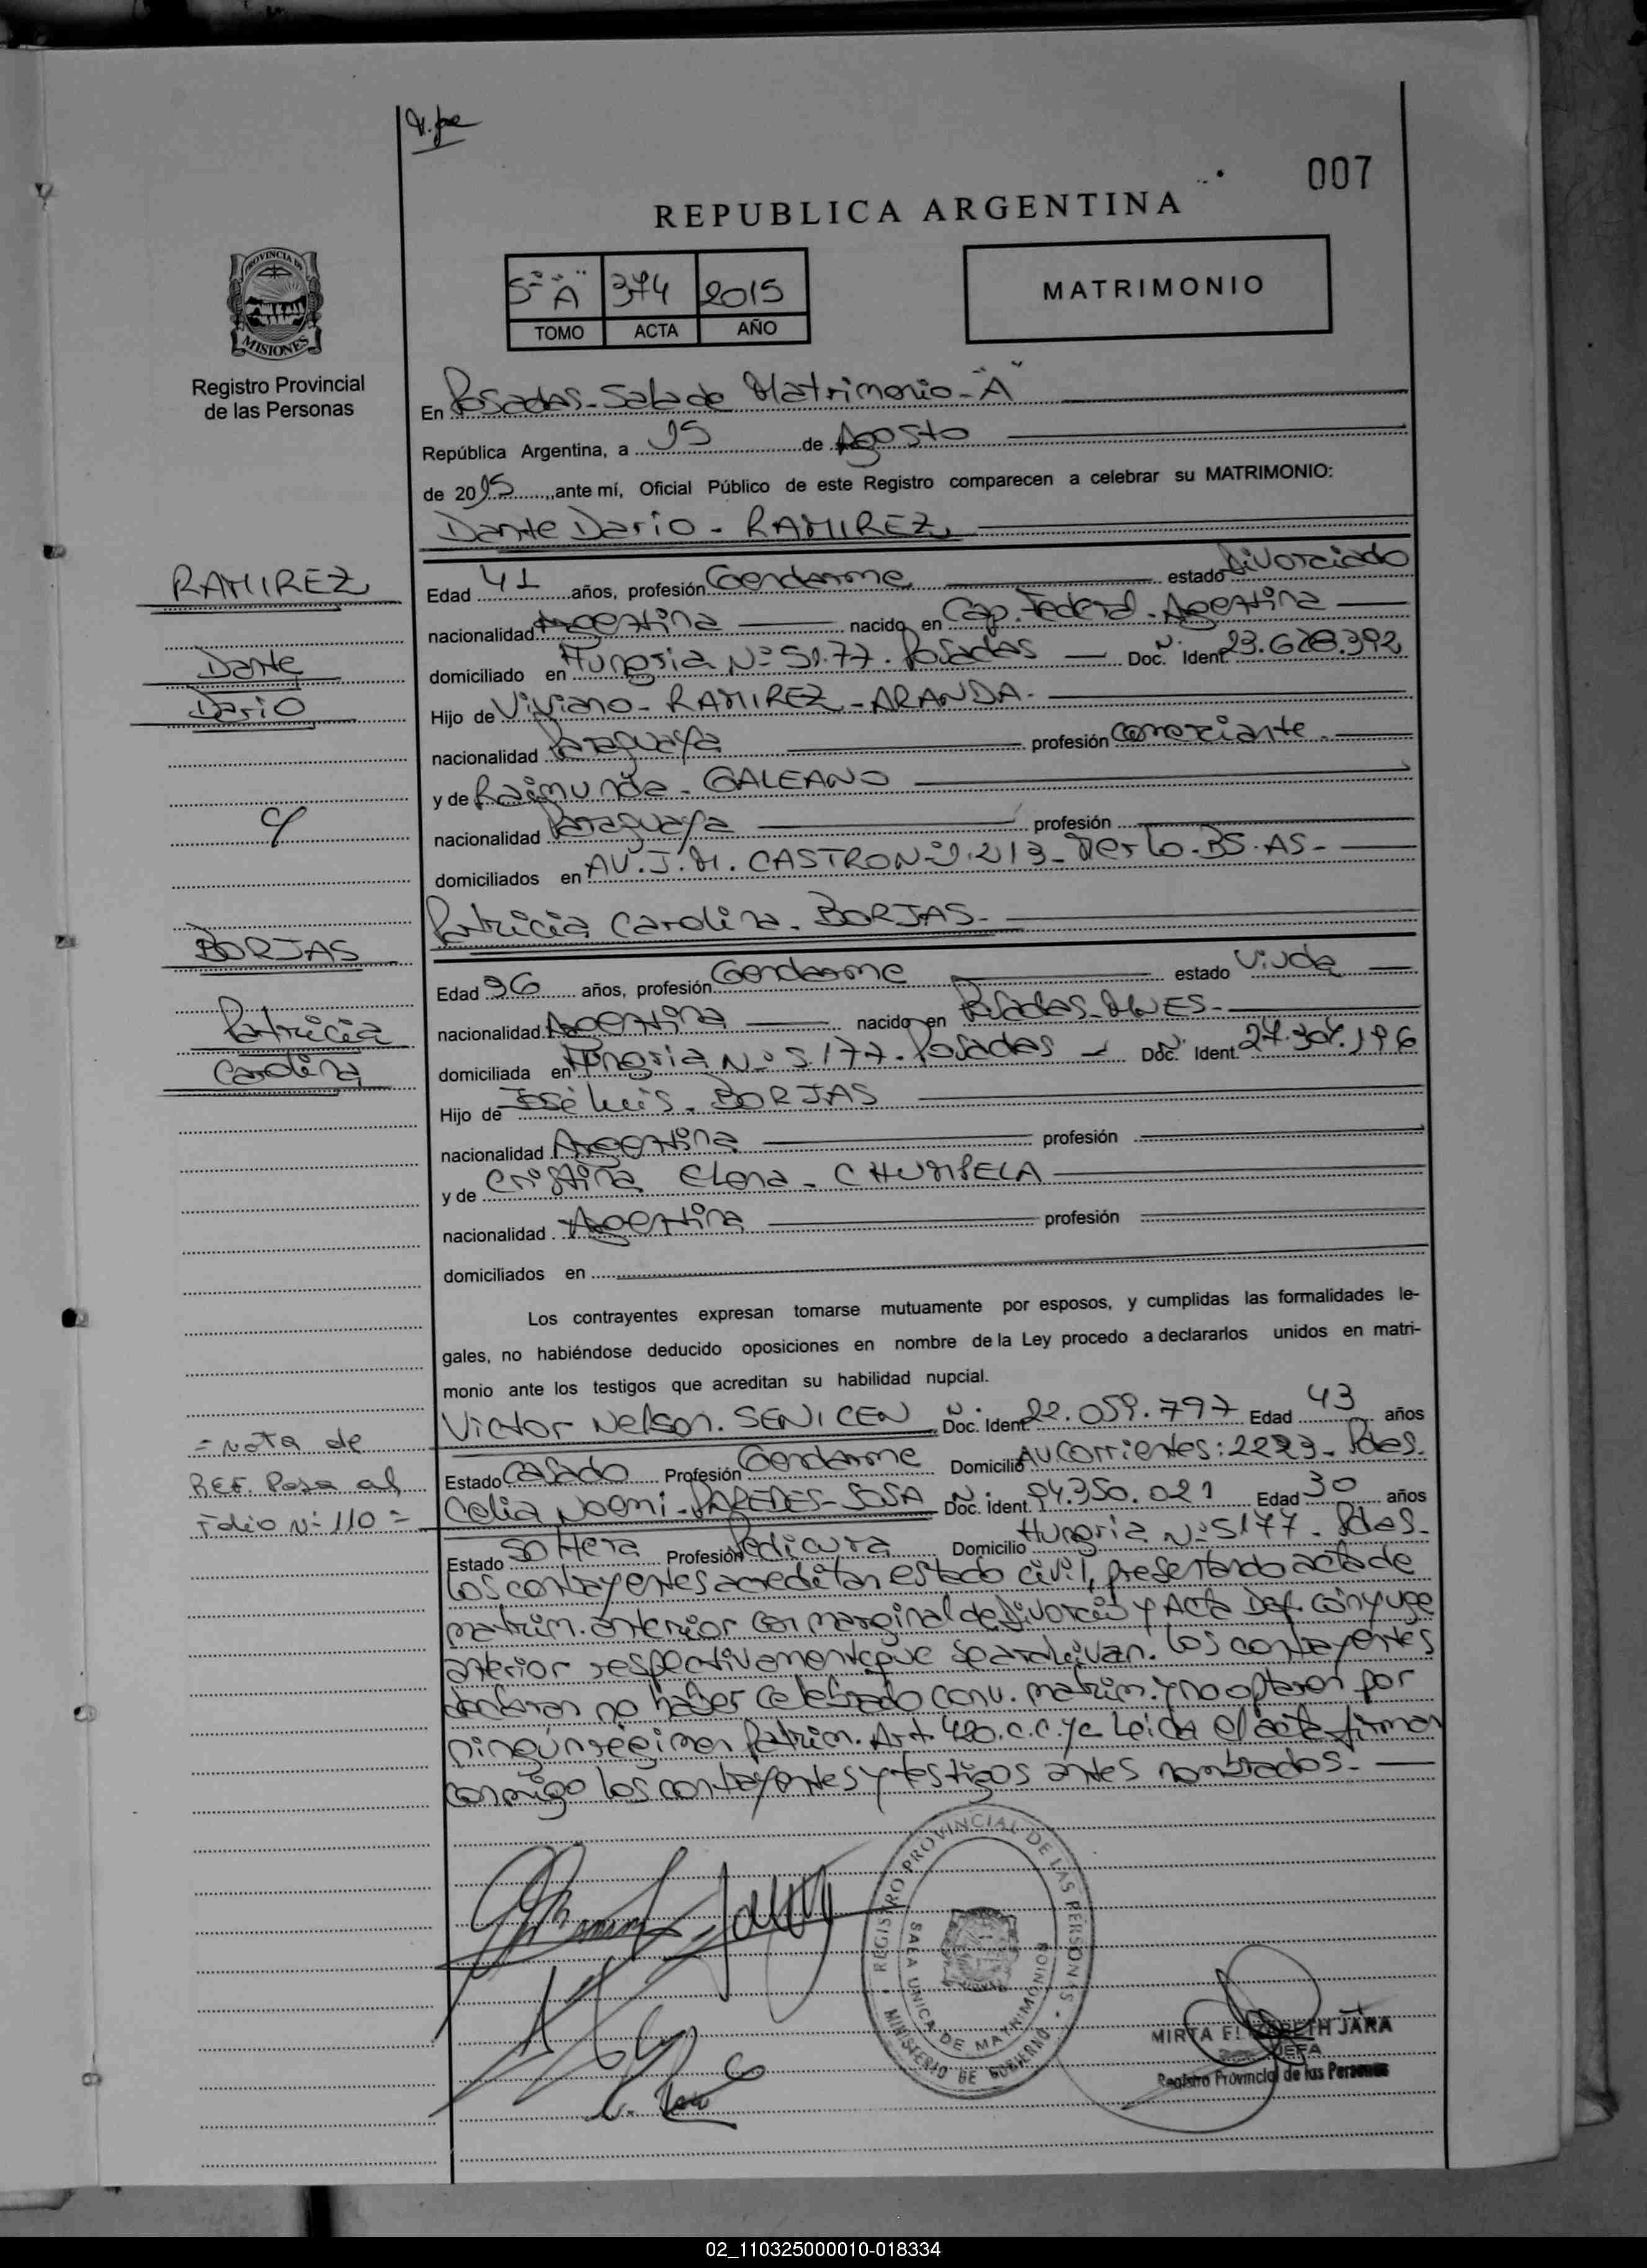 007
REPUBLICA ARGENTINA
PROVINCIA DE
MISIONES
Registro Provincial
de las Personas
5º "A" 374 2015
TOMO ACTA AÑO
MATRIMONIO
En Posadas-Sala de Matrimonio-"A"
República Argentina, a 15 de Agosto
de 2015, ante mí, Oficial Público de este Registro comparecen a celebrar su MATRIMONIO:
Dante Dario - RAMIREZ
RAMIREZ
Dante
Dario
Edad 41 años, profesión Gendarme estado divorciado
nacionalidad Argentina nacido en Cap. Federal - Argentina
domiciliado en Hungria Nº 5177. Posadas Doc. Ident. Nº 23.628.392
Hijo de Viviano - RAMIREZ - ARANDA -
nacionalidad Paraguaya profesión Comerciante -
y de Raimunda - GALEANO
nacionalidad Paraguaya profesión
domiciliados en AV. J. M. CASTRO Nº 213 - Merlo - BS. AS -
c/
Patricia Carolina - BORJAS -
BORJAS
Patricia
Carolina
Edad 36 años, profesión Gendarme estado Viuda
nacionalidad Argentina nacido en Posadas - MNES -
domiciliada en Hungria Nº 5177 - Posadas Doc. Ident. Nº 27.307.196
Hijo de José Luis - BORJAS
nacionalidad Argentina profesión
y de Cristina Elena - CHUMPELA
nacionalidad Argentina profesión
domiciliados en
Los contrayentes expresan tomarse mutuamente por esposos, y cumplidas las formalidades le-
gales, no habiéndose deducido oposiciones en nombre de la Ley procedo a declararlos unidos en matri-
monio ante los testigos que acreditan su habilidad nupcial.
Victor Nelson. SENICEN Doc. Ident. Nº 22.059.797 Edad 43 años
Estado Casado Profesión Gendarme Domicilio AV Corrientes: 2223 - Pdas.
Celia Noemi - PAREDES - SOSA Doc. Ident. Nº 94.350.021 Edad 30 años
Estado Soltera Profesión Pedicura Domicilio Hungria Nº 5177 - Pdas -
= Nota de
REF. Pasa al
Folio Nº 110 =
Los contrayentes acreditan estado civil, presentando acta de
matrim. anterior con marginal de Divorcio y Acta Def. cónyuge
anterior respectivamente que se archivan. Los contrayentes
declaran no haber celebrado conv. matrim. y no optaron por
ningún régimen Patrim. Art. 420. c.c.yc Leida el acta firman
conmigo los contrayentes y testigos antes nombrados. -
REGISTRO PROVINCIAL DE LAS PERSONAS
SALA UNICA DE MATRIMONIOS
MINISTERIO DE GOBIERNO
MIRTA ELIZABETH JARA
JEFA
Registro Provincial de las Personas
02_110325000010-018334